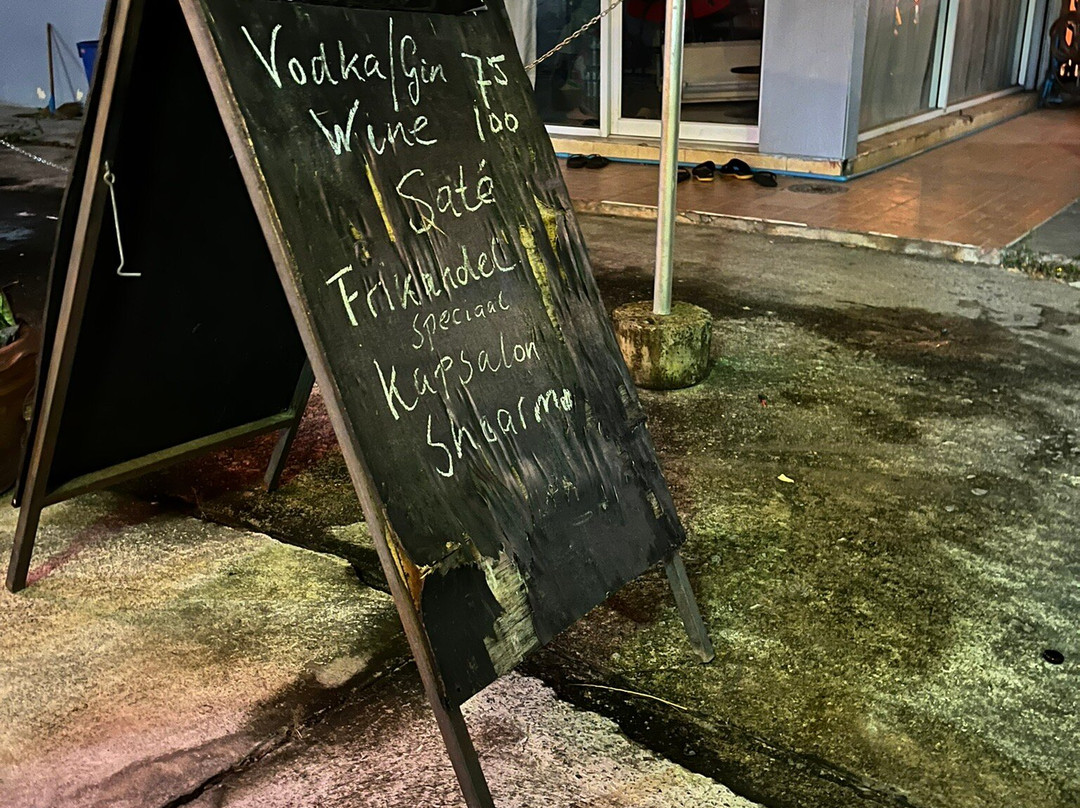 Vodka/Gin 75
Wine 100
Saté
Frikandel
speciaal
Kapsalon
Shoarma